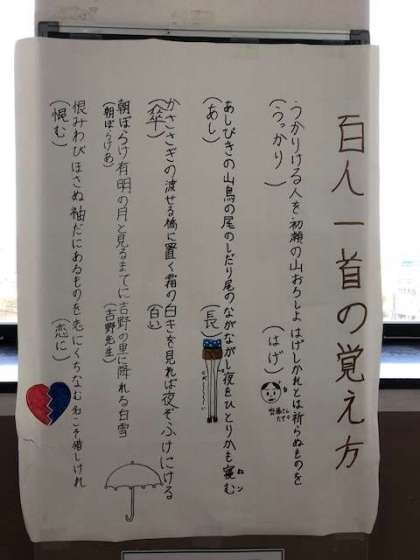 百人一首の覚え方
うかりける人を初瀬の山おろしよはげしかれとは祈らぬものを
(うっかり)
(はげ)
あしびきの山鳥の尾のしだり尾のながながし夜をひとりかも寝む
ネン
(あし)
(長)
かささぎの渡せる橋に置く霜の白きを見れば夜ぞふけにける
(傘)
(白い)
朝ぼらけ有明の月と見るまでに吉野の里に降れる白雪
(朝ぼらけあ)
(吉野先生)
恨みわびほさぬ袖だにあるものを恋にくちなむ名こそ惜しけれ
(恨む)
(恋に)